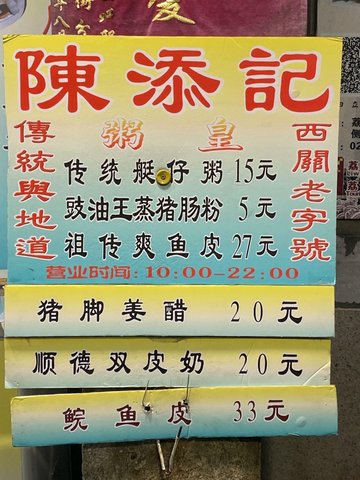 陳添記
粥皇
傳統與地道
西關老字號
传统艇仔粥 15元
豉油王蒸猪肠粉 5元
祖传爽鱼皮 27元
营业时间: 10:00-22:00
猪脚姜醋 20元
顺德双皮奶 20元
鲩鱼皮 33元